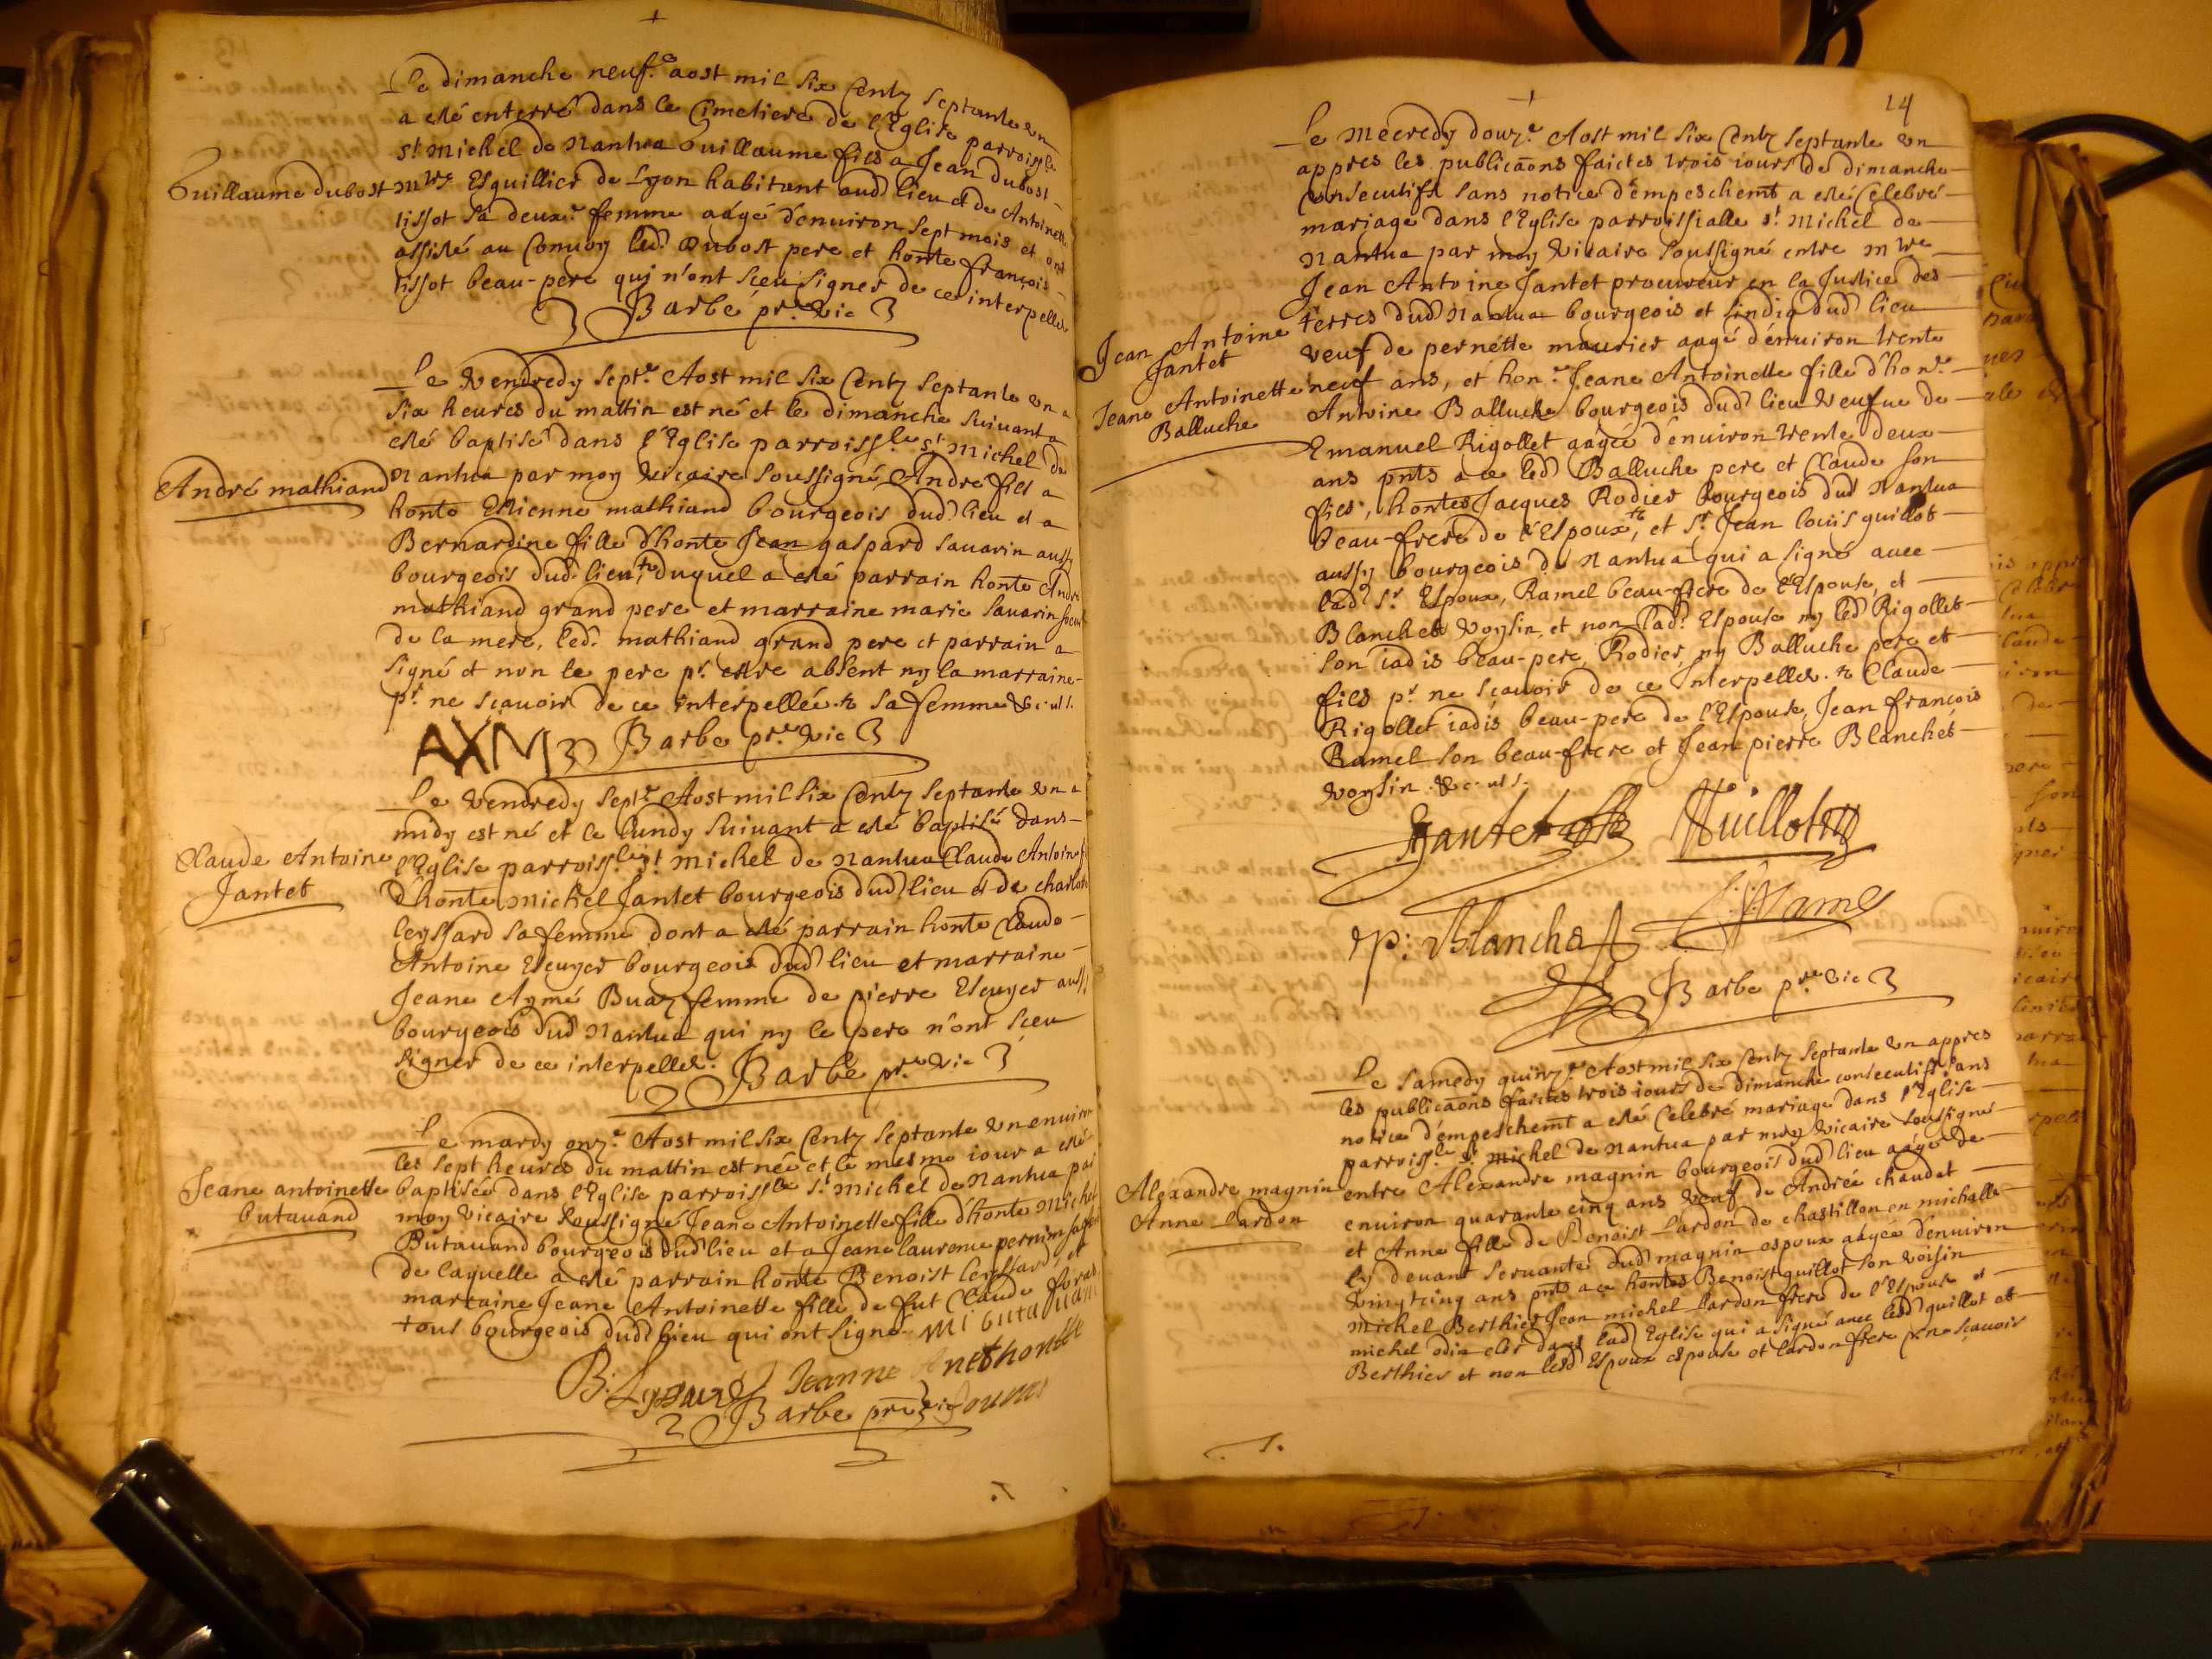 Le dimanche neuf.e aost mil six centz septante un
a esté enterré dans le Cimetiere de l'Eglise parroissle
st Michel de Nantua Guillaume fils a Jean Dubost
Guillaume Dubost
mtre Esguillier de Lyon habitant aud lieu et de Antoinette
tissot sa deux.e femme aagé d'enuiron sept mois et ont
assisté au Conuoy led. Dubost pere et honte françois
tissot beau-pere quj n'ont sceu signer de ce interpellez
Barbe pr.re vic
Le vendredy sept.e Aost mil six centz septante un a
six heures du mattin est né et le dimanche suiuant a
esté baptisé dans l'Eglise parroiss.le st Michel de
André mathiand
Nantua par moy vicaire soussigné, André fils a
honte Estienne mathiand bourgeois dud. lieu et a
Bernardine fille d'honte Jean gaspard sauarin aussy
bourgeois dud. lieu, duquel a esté parrain honte André
mathiand grand pere et marraine marie sauarin soeur
de la mere, led. mathiand grand pere et parrain a
signé et non le pere pr. estre absent ny la marraine
pr. ne sçauoir de ce interpellée. sa femme
AXM
Barbe pr.re vic
Le vendredy sept.e Aost mil six centz septante un a
midy est né et le lundy suiuant a esté baptisé dans
Claude Antoine
Jantet
l'Eglise parroiss.le st Michel de Nantua Claude Antoine f
d'honte michel Jantet bourgeois dud lieu et de charlotte
leyssard sa femme dont a esté parrain honte Claude
Antoine Escuyer bourgeois dud lieu et marraine
Jeane Aymé Buaz femme de pierre Escuyer auss
bourgeois dud Nantua qui ny le pere n'ont sceu
signer de ce interpellez. Barbe pr.re vic
Le mardy onz.e Aost mil six centz septante un enuiron
les sept heures du mattin est née et le mesme iour a esté
Jeane antoinette
butauand
baptisée dans l'Eglise parroissle st Michel de Nantua par
moy vicaire soussigné Jeane Antoinette fille d'honte Michel
Butauand bourgeois dud lieu et a Jeane laurence pernim sa fem
de laquelle a esté parrain honte Benoist leyssard, et
marraine Jeane Antoinette fille de fut Claude foras
tous bourgeois dud lieu qui ont signé mi butauan
B. Lyssard Jeanne Anethonete
Barbe pr.re vic
14
Le Mecredy douz.e Aost mil six centz septante un
appres les publicaons faictes trois iours de dimanche
consecutifs sans notice d'empeschemt a esté Celebré
mariage dans l'Eglise parroissialle st Michel de
Nantua par moy vicaire soussigné entre mtre
Jean Antoine Jantet procureur en la Justice des
Jean Antoine
Jantet
terres dud Nantua bourgeois et sindiq dud lieu
veuf de pernette maurier aagé d'enuiron trente
Jeane Antoinette
Balluche
neuf ans, et hon.e Jeane Antoinette fille d'hon.e
Antoine Balluche bourgeois dud lieu veufue de
Emanuel Rigollet aagée d'enuiron trente deux
ans pnts a ce led Balluche pere et Claude son
fils, hontes Jacques Rodier bourgeois dud Nantua
beau-frere de l'Espoux, et sr Jean louis guillot
aussy bourgeois de Nantua qui a signé auec
lad. sr. Espoux, Ramel beau-frere de l'Espouse, et
Blanchet voysin, et non lad. Espouse ny led Rigollet
son iadis beau-pere, Rodier, ny Balluche pere et
fils pr ne sçauoir de ce Interpellez. Claude
Rigollet iadis beau-pere de l'Espouse, Jean françois
Ramel son beau-frere et Jean pierre Blanchet
voysin.
Jantet Guillot
Ramel
Jp: Blanchet
Barbe pr.re vic
Le samedy quinz.e Aost mil six centz septante un appres
les publicaons faictes trois iours de dimanche consecutifs sans
notice d'empeschemt a esté Celebré mariage dans l'Eglise
parroiss.le st Michel de Nantua par moy vicaire soussigné
Alexandre magnin
Anne Lardon
entre Alexandre magnin bourgeois dud lieu aagé de
enuiron quarante cinq ans veuf de Andrée chaudet
et Anne fille de Benoist Lardon de chastillon en michalle
cy deuant seruante dud magnin espoux aagée d'enuiron
vingtcinq ans pnts a ce hontes Benoist guillot son voisin
michel Berthier Jean michel lardon frere de l'Espouse et
michel odin clerc dans lad Eglise qui a signé auec led guillot et
Berthier et non lesd Espoux espouse et lardon frere pr ne sçauoir